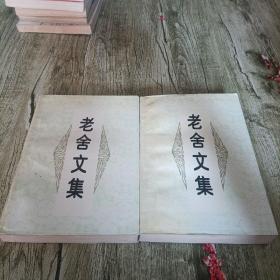 老舍文集
老舍文集